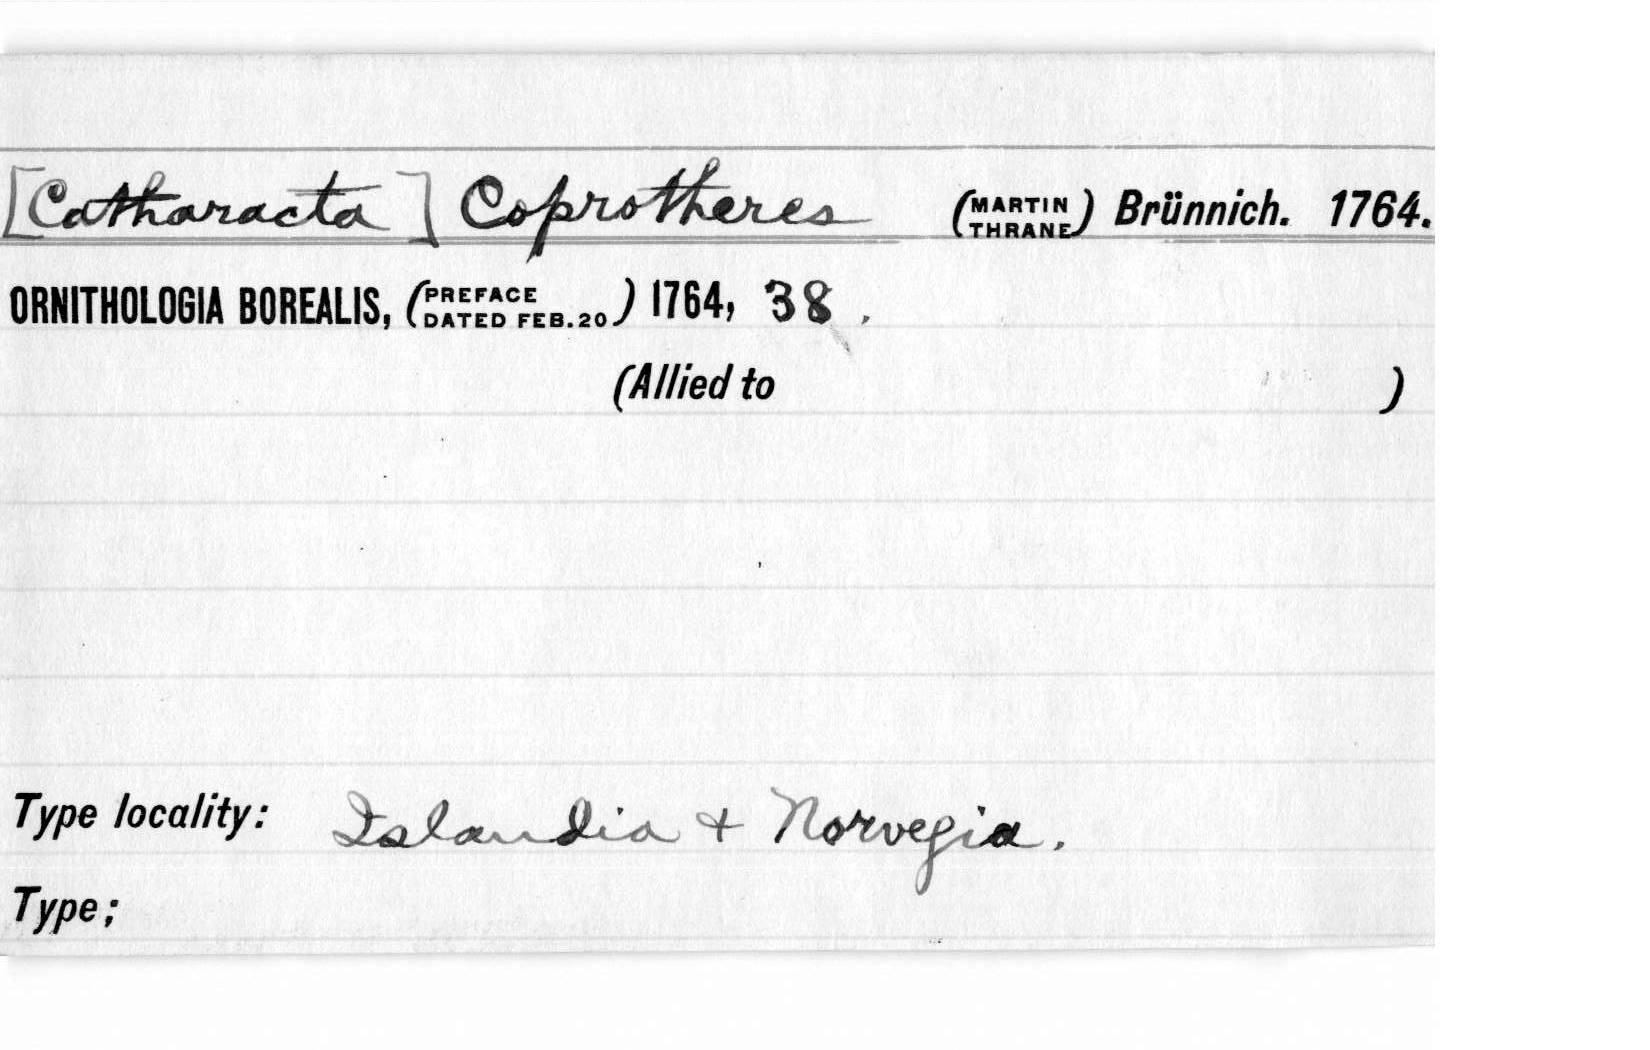 [Catharacta] Coprotheres (MARTIN THRANE) Brünnich. 1764.
ORNITHOLOGIA BOREALIS, (PREFACE DATED FEB. 20) 1764, 38.
(Allied to )
Type locality: Islandia + Norvegia.
Type;